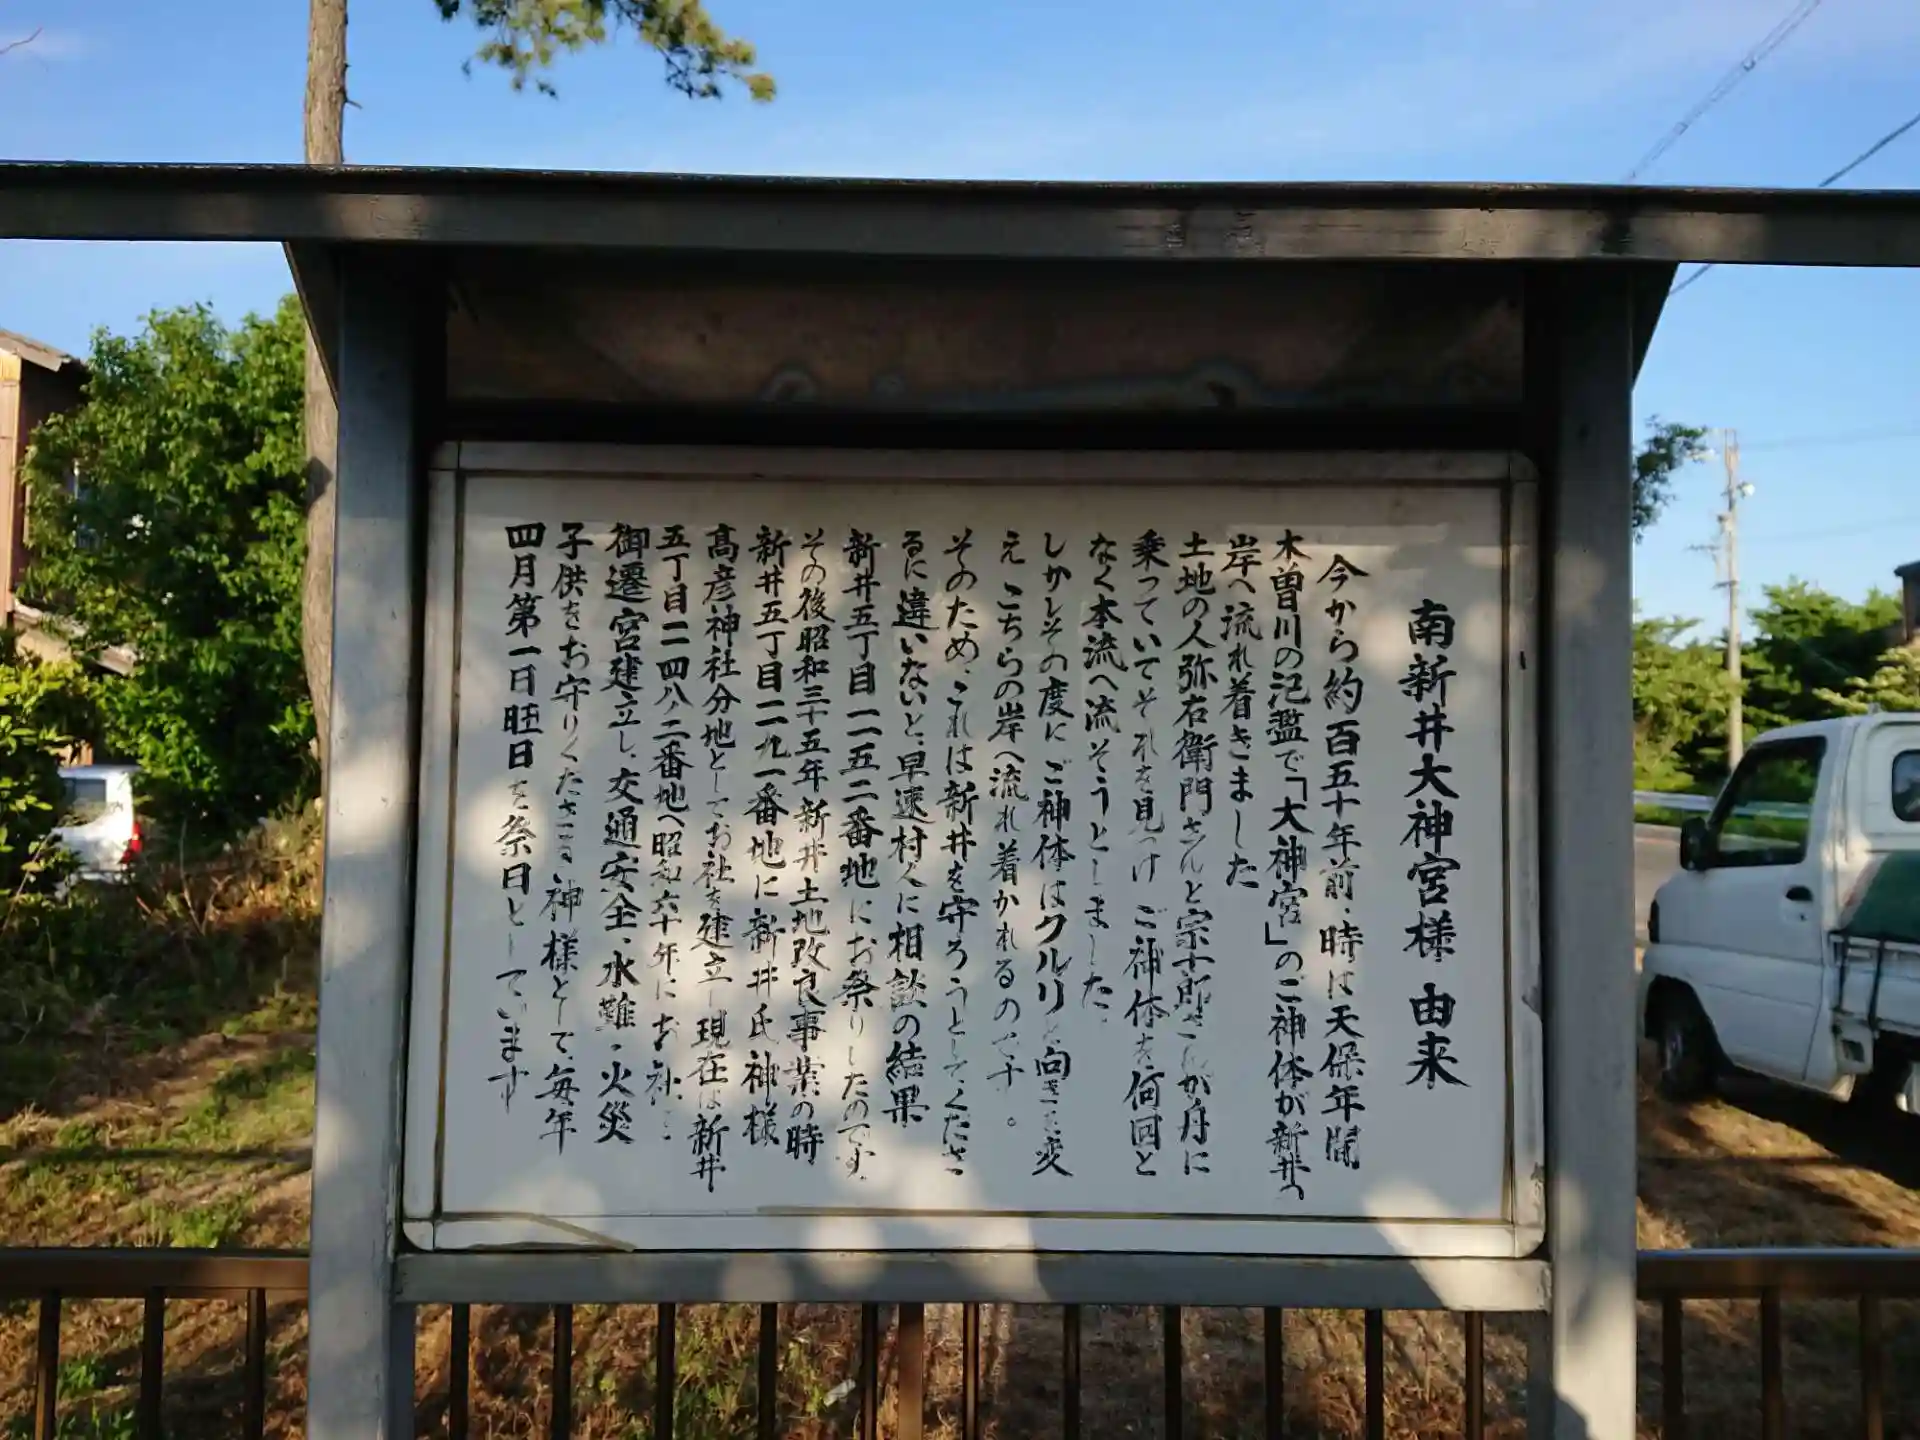 南新井大神宮様 由来
今から約百五十年前、時は天保年間
木曽川の氾濫で「大神宮」のご神体が新井の
岸へ流れ着きました
土地の人弥右衛門さんと宗十郎さんが舟に
乗っていてそれを見つけ ご神体を何回と
なく本流へ流そうとしました、
しかしその度にご神体はクルリと向きを変
え こちらの岸へ流れ着かれるのです。
そのため、これは新井を守ろうとしてくださ
るに違いないと、早速村人に相談の結果
新井五丁目一一五二番地にお祭りしたのです、
その後昭和三十五年新井土地改良事業の時
新井五丁目二九一番地に新井氏神様
髙彦神社分地としてお社を建立し現在は新井
五丁目二四八ノ二番地へ昭和六十年にお社を
御遷宮建立し、交通安全、水難、火災
子供をお守りくださる神様として、毎年
四月第一日旺日を祭日としています